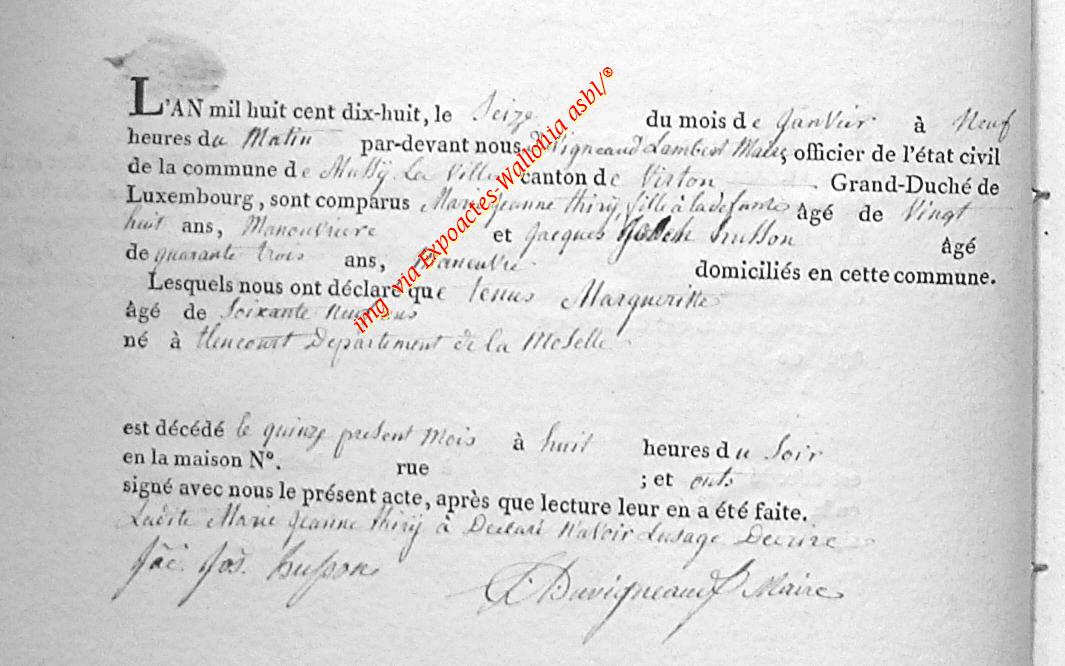 L'AN mil huit cent dix-huit, le Seize du mois de Janvier à Neuf
heures du Matin par-devant nous Lambert officier de l'état civil
de la commune de Mussÿ La Ville canton de Virton Grand-Duché de
Luxembourg, sont comparus Marie Jeanne thirÿ fille à la defunte âgé de Vingt
huit ans, Manouvriere et Jacques husson âgé
de quarante trois ans, Maneuvre domiciliés en cette commune.
Lesquels nous ont déclaré que tenus Margueritte
âgé de Soixante
né à Departement de la Moselle
est décédé le quinze present mois à huit heures du Soir
en la maison N°. rue ; et onts
signé avec nous le présent acte, après que lecture leur en a été faite.
Ladite Marie Jeanne thirÿ à Declaré N'avoir Lusage Decrire
Jac. Jos. husson Duvigneaud Maire
img via Expoactes-Wallonia asbl/®